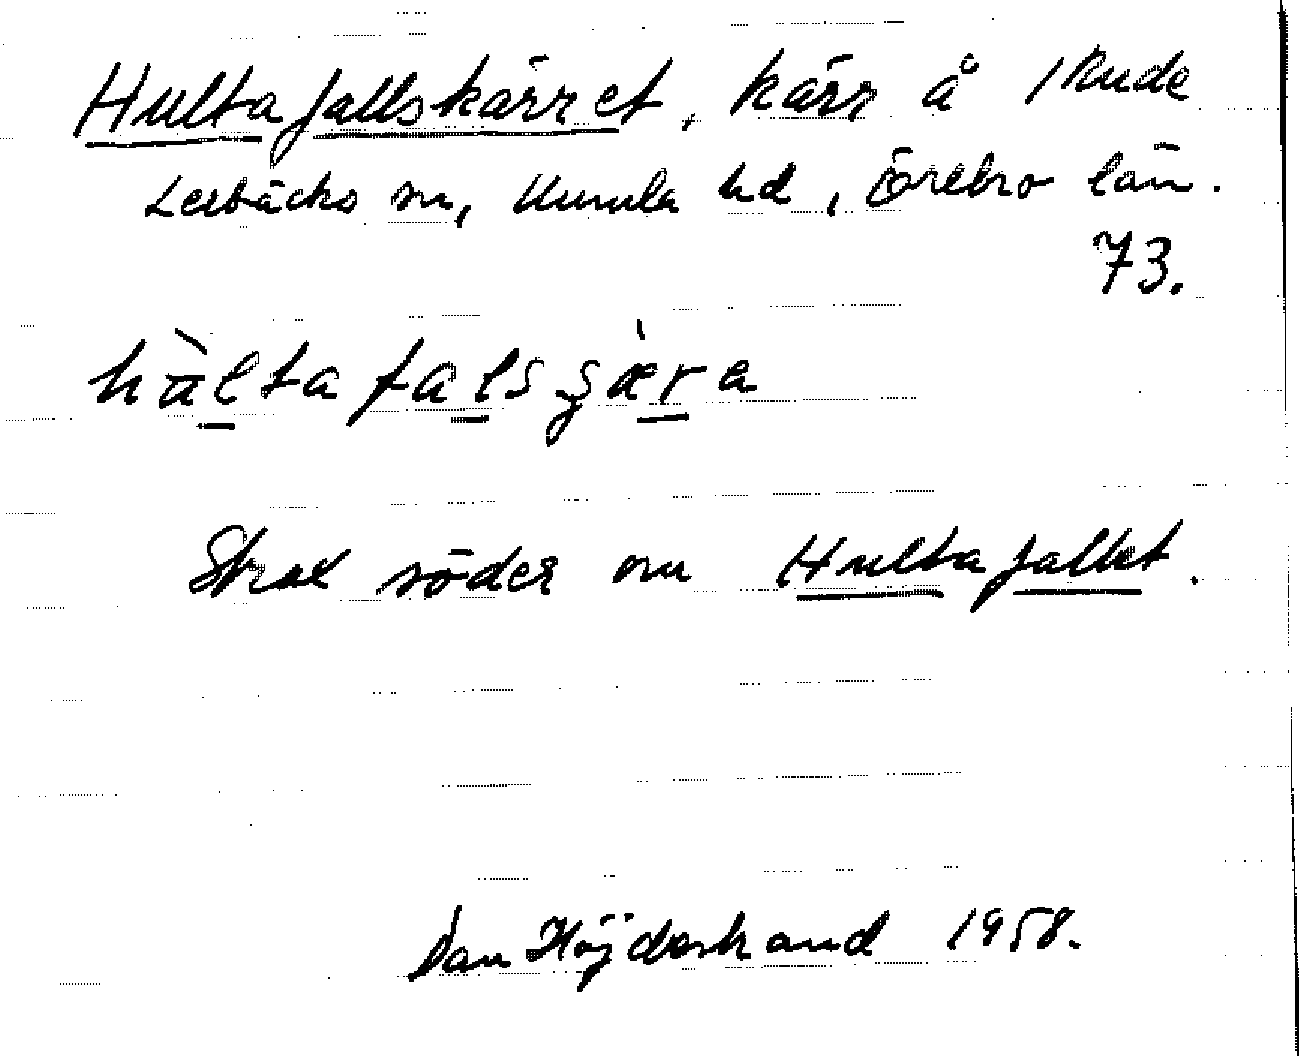 Hultafallskärret, kärr å 1 Rude
Lerbäcks sn, Kumla hd, Örebro län.
73.
hàltafalsçæra
Strax söder om Hultafallet.
Dan Höjdestrand 1958.